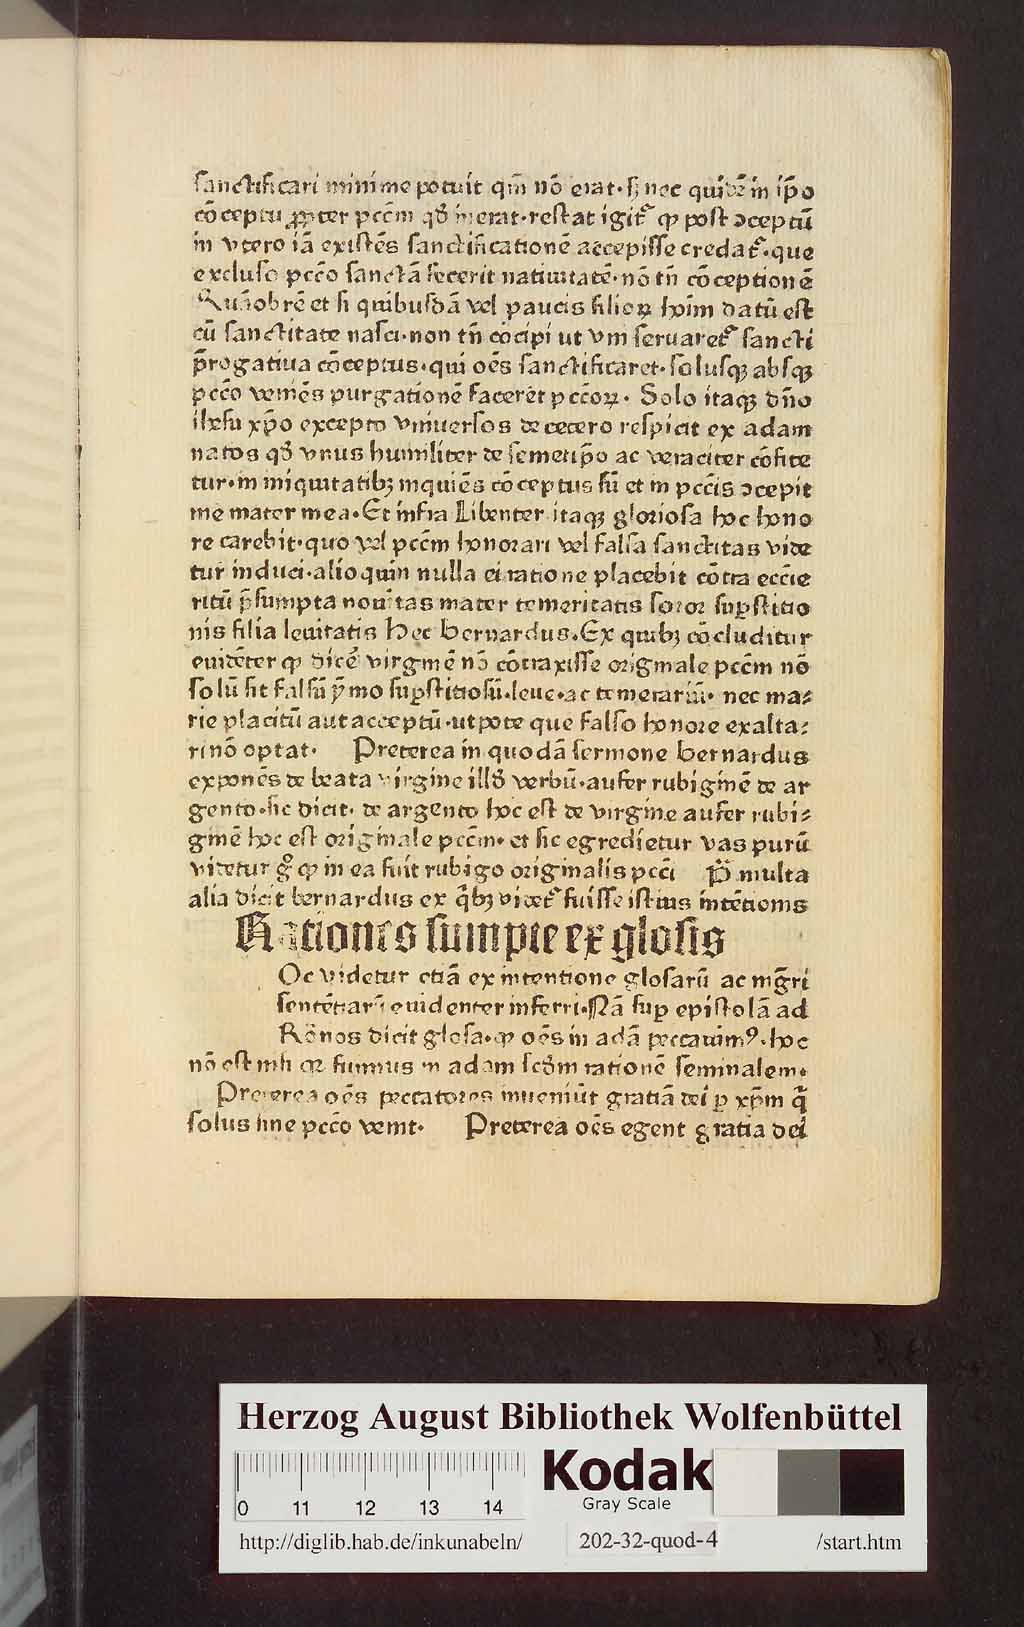 sanctificari minime potuit qm̄ nō erat·ſꝫ nec quidē in ip̄o
cōceptu ꝓpter pccm̄ qd̓ inerat·restat igit᷑ ꝙ post ↄceptū
in vtero iā existēs sanctificationē accepisse credat᷑·que
excluso pccō sanctā fecerit natiuitatē·nō tn̄ cōceptionē
Quāobrē et si quibusdā vel paucis filioꝝ hoīm datū est
cū sanctitate nasci·non tn̄ cōcipi ut vni seruaret᷑ sancti
p̄rogatiua cōceptus·qui oēs sanctificaret·solusqꝫ absqꝫ
pccō veniēs purgationē faceret pccōꝝ· Solo itaqꝫ dn̄o
ihesu xp̄o excepto vniuersos de cetero respicit ex adam
natos qd̓ vnus humiliter de semetip̄o ac veraciter cōfite
tur·in iniquitatibꝫ inquiēs cōceptus sū et in pccīs ↄcepit
me mater mea·Et infra Libenter itaqꝫ gloriosa hoc hono
re carebit·quo vel pccm̄ honorari vel falsa sanctitas vide
tur induci·alioquin nulla ei ratione placebit cōtra eccīe
ritū p̄sumpta nouitas mater temeritatis soror suꝑstitio
nis filia leuitatis Hec Bernardus·Ex quibꝫ cōcluditur
euidēter ꝙ dicē virginē nō cōtraxisse originale pccm̄ nō
solū sit falsū ymo suꝑstitiosū·leue·ac temerariū· nec ma⸗
rie placitū aut acceptū·utpote que falso honore exalta⸗
ri nō optat· Preterea in quodā sermone Bernardus
exponēs de beata virgine illd̓ verbū·aufer rubiginē de ar
gento·sic dicit· de argento hoc est de virgine aufer rubi⸗
ginē hoc est originale pccm̄· et sic egredietur vas purū
videtur gͦ ꝙ in ea fuit rubigo originalis pccī multa
alia dicit bernardus ex qͥbꝫ videt᷑ fuisse istius intētionis
Rationes sumpte ex glosis
Oc videtur etiā ex intentione glosarū ac mḡri
sentētiarū euidenter inferri·Nā suꝑ epistolā ad
Rōnos dicit glosa·ꝙ oēs in adā peccauimꝰ·hoc
nō est nisi qꝛ fuimus in adam scdm̄ rationē seminalem·
Preterea oēs peccatores inueniūt gratiā dei ꝑ xpm̄ qͥ
solus sine pccō venit· Preterea oēs egent gratia dei
Herzog August Bibliothek Wolfenbüttel
0 11 12 13 14
Kodak
Gray Scale
http://diglib.hab.de/inkunabeln/ 202-32-quod-4 /start.htm